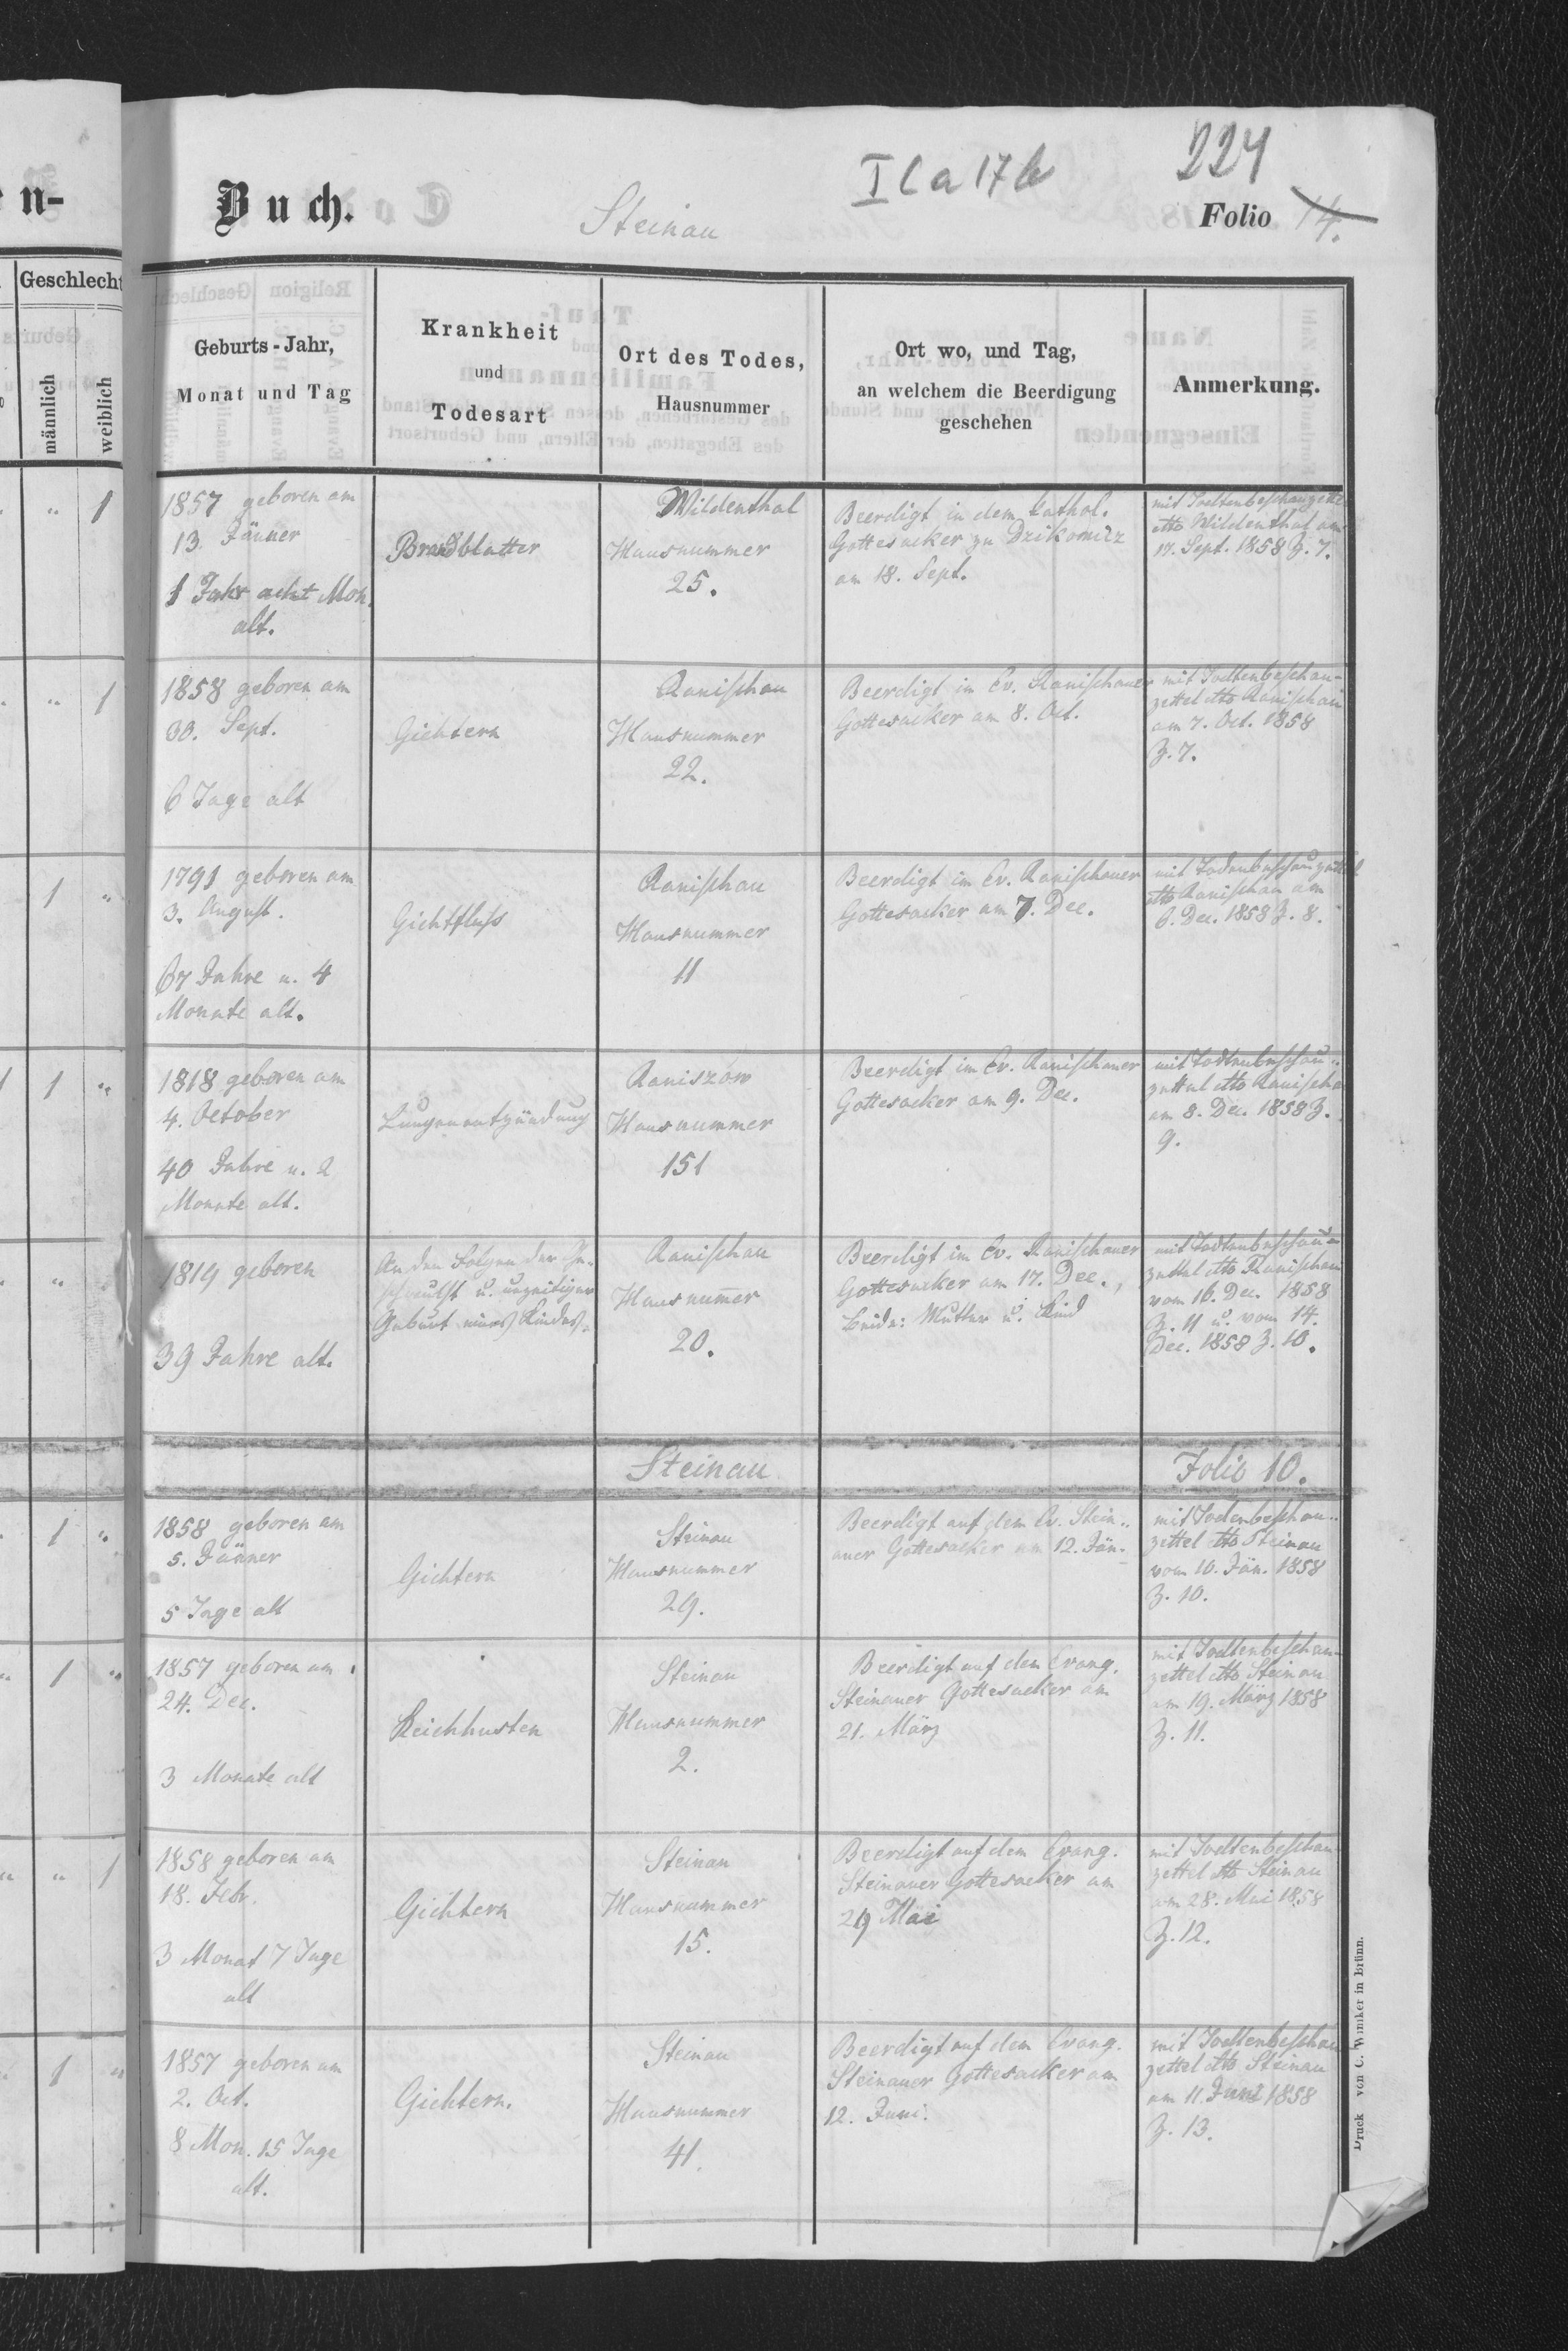 n-
Buch.
Steinau
I C a 17 b
224
Folio 14.
Geschlecht
männlich
weiblich
Geburts-Jahr,
Monat und Tag
Krankheit
und
Todesart
Ort des Todes,
Hausnummer
Ort wo, und Tag,
an welchem die Beerdigung
geschehen
Anmerkung.
" 1
1857 geboren am
13. Jänner
1 Jahr acht Mon.
alt.
Brandblatter
Wildenthal
Hausnummer
25.
Beerdigt in dem kathol.
Gottesacker zu Dzikowiez
am 18. Sept.
mit Todtenbeschauzettel
dtto Wildenthal am
17. Sept. 1858 Z. 7.
" 1
1858 geboren am
30. Sept.
6 Tage alt
Gichtern
Ranischau
Hausnummer
22.
Beerdigt im Ev. Ranischauer
Gottesacker am 8. Oct.
mit Todtenbeschau-
zettel dtto Ranischau
am 7. Oct. 1858
Z. 7.
1 "
1791 geboren am
3. August.
67 Jahre u. 4
Monate alt.
Gichtfluss
Ranischau
Hausnummer
11
Beerdigt im Ev. Ranischauer
Gottesacker am 7. Dec.
mit Todenbeschauzettel
dtto Ranischau am
6. Dec. 1858 Z. 8.
1 1 "
1818 geboren am
4. October
40 Jahre u. 2
Monate alt.
Lungenentzündung
Raniszów
Hausnummer
151
Beerdigt im Ev. Ranischauer
Gottesacker am 9. Dec.
mit Todtenbeschau-
zettel dtto Ranischa
am 8. Dec. 1858 Z.
9.
" "
1819 geboren
39 Jahre alt.
An den Folgen der Ge-
schwulst u. unzeitiger
Geburt eines Kindes.
Ranischau
Hausnumer
20.
Beerdigt im Ev. Ranischauer
Gottesacker am 17. Dec.,
beide: Mutter u. Kind
mit Todtenbeschau-
zettel dtto Ranischau
vom 16. Dec. 1858
Z. 11 u. vom 14.
Dec. 1858 Z. 10.
Steinau
Folio 10.
1 "
1858 geboren am
5. Jänner
5 Tage alt
Gichtern
Steinau
Hausnummer
29.
Beerdigt auf dem Ev. Stein-
auer Gottesacker am 12. Jän.
mit Todenbeschau-
zettel dtto Steinau
vom 10. Jän. 1858
Z. 10.
" 1 "
1857 geboren am
24. Dec.
3 Monate alt
Keichhusten
Steinau
Hausnummer
2.
Beerdigt auf dem Evang.
Steinauer Gottesacker am
21. März
mit Todtenbeschau-
zettel dtto Steinau
am 19. März 1858
Z. 11.
" " 1
1858 geboren am
18. Febr.
3 Monat 7 Tage
alt
Gichtern
Steinau
Hausnummer
15.
Beerdigt auf dem Evang.
Steinauer Gottesacker am
29 Mai
mit Todtenbeschau
zettel dtto Steinau
am 28. Mai 1858
Z. 12.
" 1 "
1857 geboren am
2. Oct.
8 Mon. 15 Tage
alt.
Gichtern.
Steinau
Hausnummer
41.
Beerdigt auf dem Evang.
Steinauer Gottesacker am
12. Juni.
mit Todtenbeschau
zettel dtto Steinau
am 11. Juni 1858
Z. 13.
Druck von C. Winiker in Brünn.